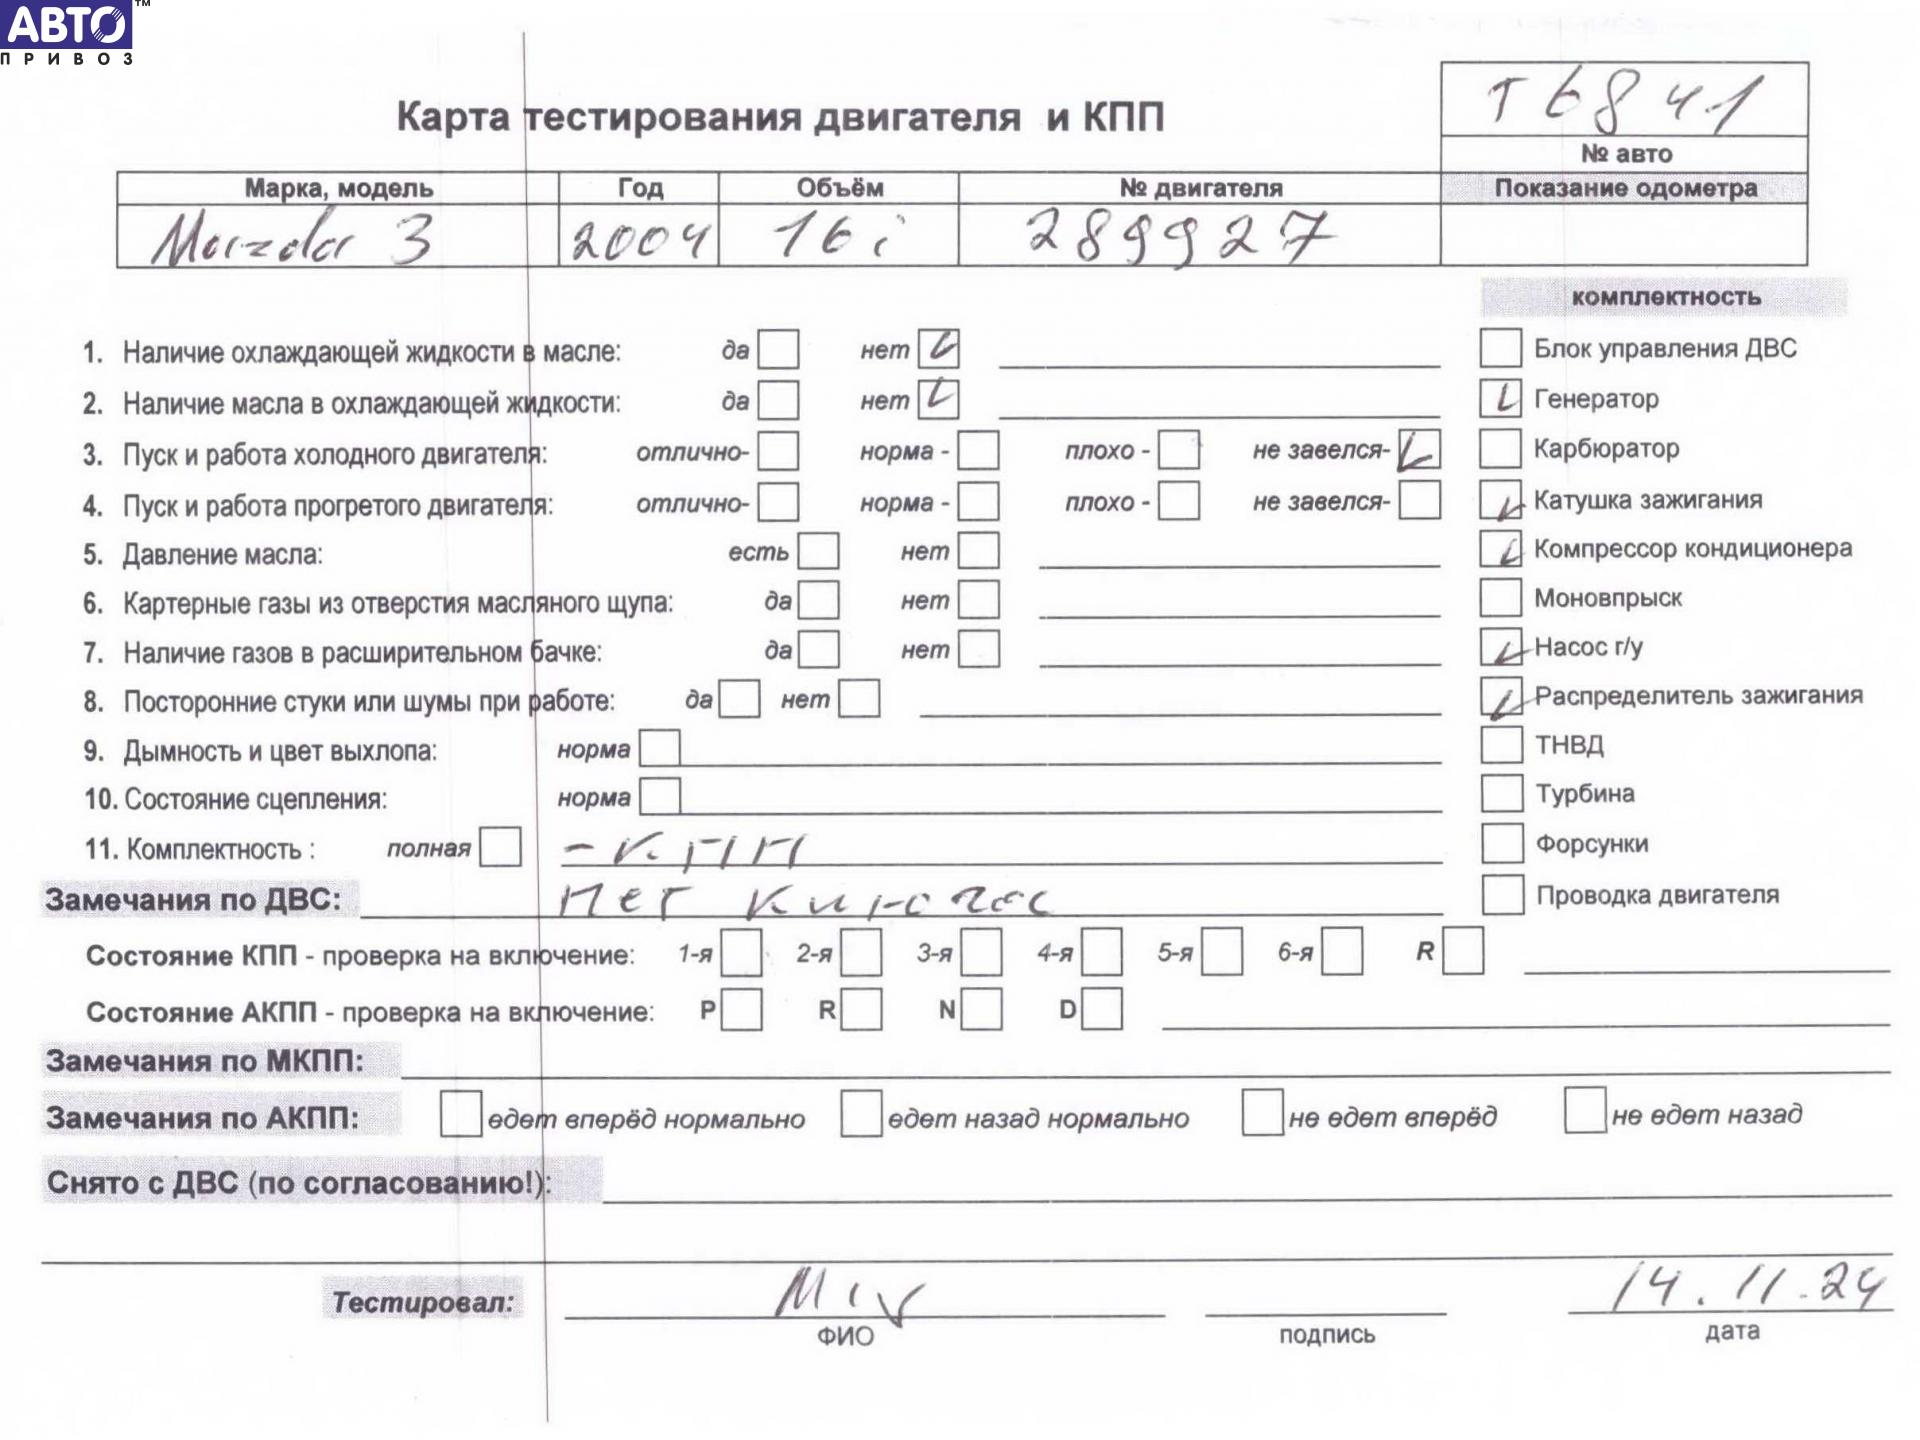 АВТО™
ПРИВОЗ
Карта тестирования двигателя и КПП
Т6841
№ авто
Марка, модель Год Объём № двигателя Показание одометра
Mazda 3 2004 16i 289927
комплектность
1. Наличие охлаждающей жидкости в масле: да нет
Блок управления ДВС
2. Наличие масла в охлаждающей жидкости: да нет
Генератор
3. Пуск и работа холодного двигателя: отлично- норма - плохо - не завелся-
Карбюратор
4. Пуск и работа прогретого двигателя: отлично- норма - плохо - не завелся-
Катушка зажигания
5. Давление масла: есть нет
Компрессор кондиционера
6. Картерные газы из отверстия масляного щупа: да нет
Моновпрыск
7. Наличие газов в расширительном бачке: да нет
Насос г/у
8. Посторонние стуки или шумы при работе: да нет
Распределитель зажигания
9. Дымность и цвет выхлопа: норма
ТНВД
10. Состояние сцепления: норма
Турбина
11. Комплектность : полная - КПП
Форсунки
Замечания по ДВС: нет ключа
Проводка двигателя
Состояние КПП - проверка на включение: 1-я 2-я 3-я 4-я 5-я 6-я R
Состояние АКПП - проверка на включение: P R N D
Замечания по МКПП:
Замечания по АКПП: едет вперёд нормально едет назад нормально не едет вперёд не едет назад
Снято с ДВС (по согласованию!):
Тестировал: 14.11.24
ФИО подпись дата